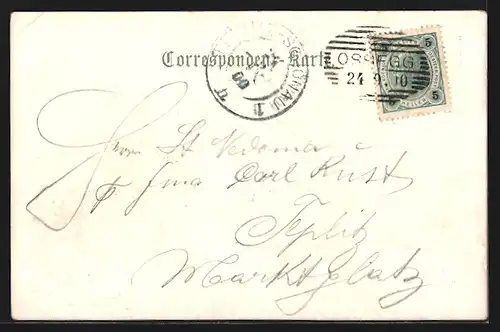 Correspondenz-Karte
OSSEGG
24 9 10
5
5
Herrn St Vedoma
p Fma Carl Rust
Teplitz
Marktplatz